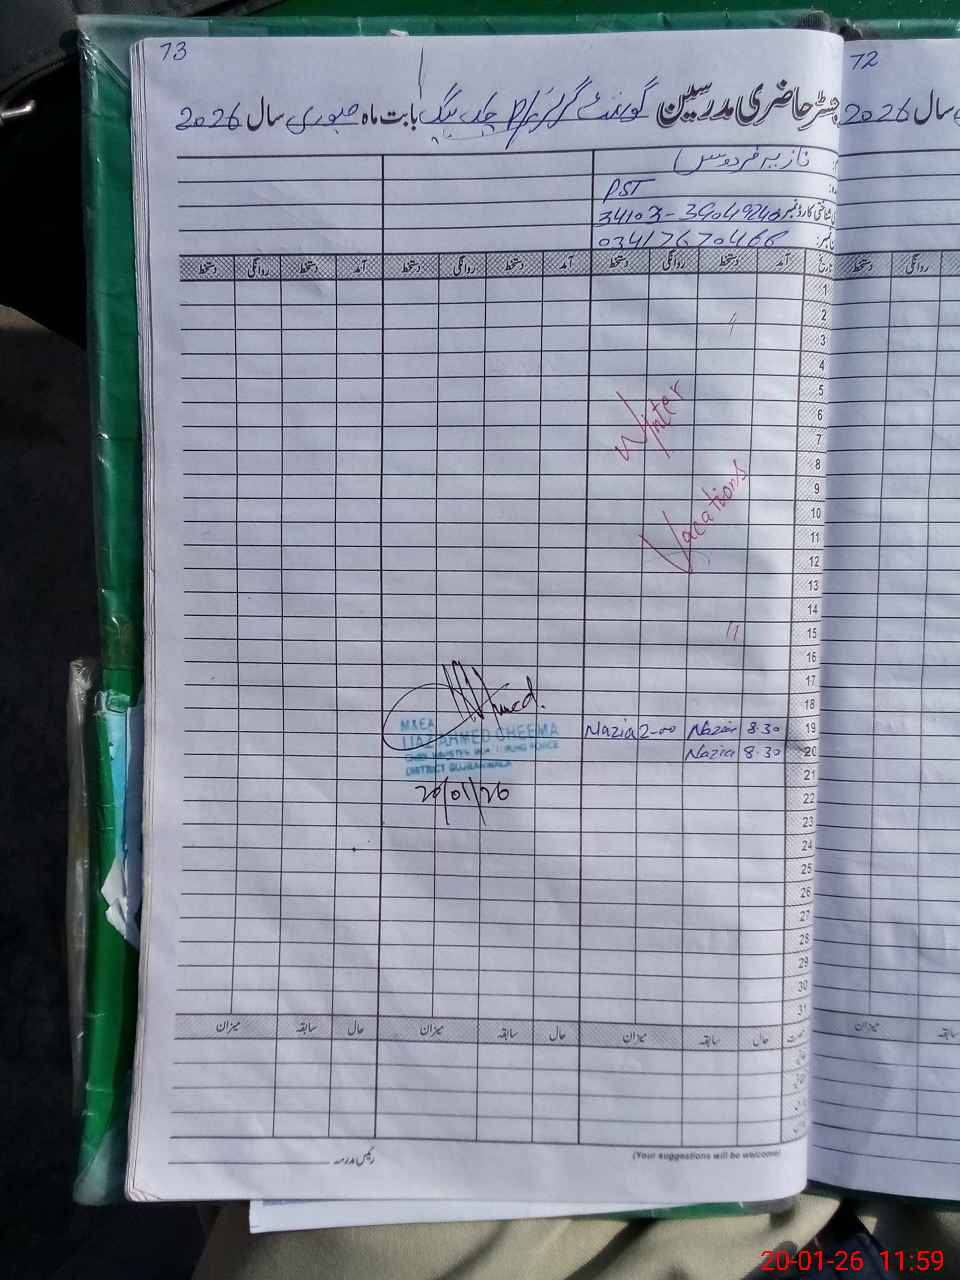 73
72
رجسٹر حاضری مدرسین گورنمنٹ گرلز P/S بابت ماہ جنوری سال 2026
سال 2026
نازیہ فردوس
PST
شناختی کارڈ نمبر 34103-3904924
03417670466
تاریخ آمد دستخط روانگی دستخط آمد دستخط روانگی دستخط آمد دستخط روانگی دستخط
روانگی دستخط
1
2 "
3
4
5
6
7
8
9
10
11
12
13
14
15 "
16
17
18
19 8.30 Nazia 2-00 Nazia
20 8.30 Nazia
21
22
23
24
25
26
27
28
29
30
31
Winter
Vacations
Ahmed.
M&EA
IJAZ AHMED CHEEMA
CHIEF MINISTER MONITORING FORCE
DISTRICT GUJRANWALA
20/01/26
حال سابقہ میزان حال سابقہ میزان حال سابقہ میزان
سابقہ میزان
رئیس مدرسہ
(Your suggestions will be welcome)
20-01-26 11:59